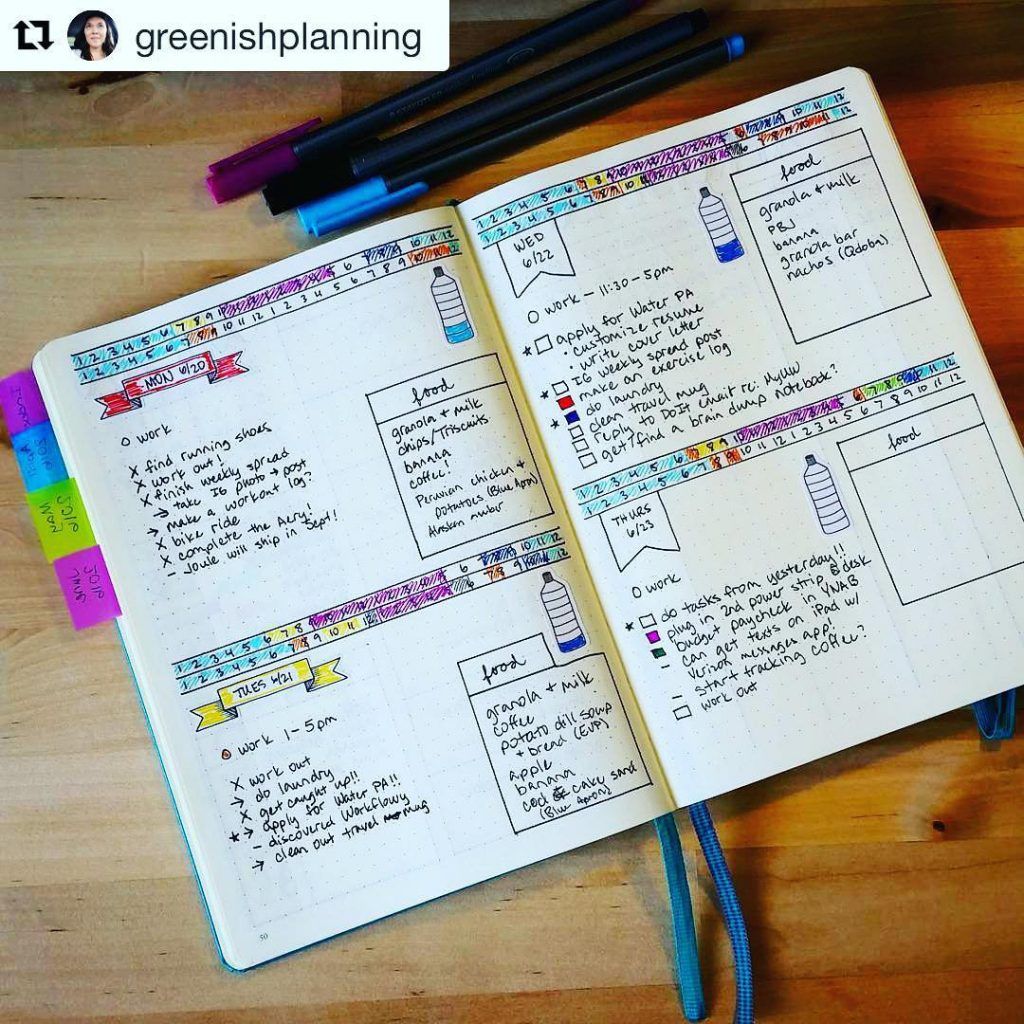 greenishplanning
STAEDTLER
1 2 3 4 5 6 7 8 9 10 11 12 1 2 3 4 5 6 7 8 9 10 11 12
1 2 3 4 5 6 7 8 9 10 11 12 1 2 3 4 5 6 7 8 9 10 11 12
MON 6/20
O work
X find running shoes
X work out!
X finish weekly spread
→ take IG photo + post
→ make a workout log?
X bike ride
X complete the Aery!
- Joule will ship in Sept!
food
granola + milk
chips/Triscuits
banana
coffee!
Peruvian chicken +
potatoes (Blue Apron)
Alaskan Amber
1 2 3 4 5 6 7 8 9 10 11 12 1 2 3 4 5 6 7 8 9 10 11 12
1 2 3 4 5 6 7 8 9 10 11 12 1 2 3 4 5 6 7 8 9 10 11 12
TUES 6/21
O work 1-5pm
X work out
→ do laundry
X get caught up!!
* → apply for Water PA!!
- discovered Workflowy
→ clean out travel mug
food
granola + milk
coffee
potato dill soup
+ bread (EVP)
apple
banana
cod cake sand
(Blue Apron)
50
WED
6/22
O work - 11:30-5pm
* □ apply for Water PA
• customize resume
• write cover letter
□ IG weekly spread post
make an exercise log
* do laundry
□ clean travel mug
□ reply to DoIt email re: MyUW
□ get/find a brain dump notebook?
food
granola + milk
PBJ
banana
granola bar
nachos (Qdoba)
THURS
6/23
O work
* □ do tasks from yesterday!!
plug in 2nd power strip @ desk
budget paycheck in YNAB
- can get texts on iPad w/
Verizon messages app!
- start tracking coffee?
□ work out
food